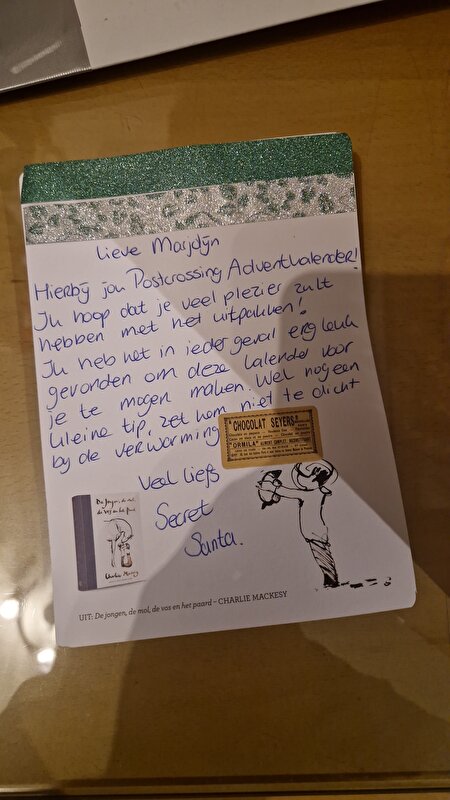 Lieve Marjolijn
Hierbij jou Postcrossing Adventkalender!
Ik hoop dat je veel plezier zult
hebben met het uitpakken!
Ik heb het in ieder geval erg leuk
gevonden om deze kalender voor
je te mogen maken. Wel nog een
kleine tip, zet hem niet te dicht
bij de verwarming
"CHOCOLAT SEYERS"
"ORMILA" ALIMENT COMPLET, RECONSTITUANT
Veel liefs
Secret
Santa.
De jongen, de mol,
de vos en het paard
Charlie Mackesy
UIT: De jongen, de mol, de vos en het paard – CHARLIE MACKESY